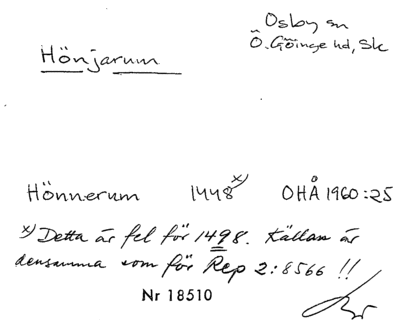 Osby sn
Hönjarum
Ö. Göinge hd, Sk
Hönnerum 1448 x) OHÅ 1960:25
x) Detta är fel för 1498. Källan är
densamma som för Rep 2:8566 !!
Nr 18510